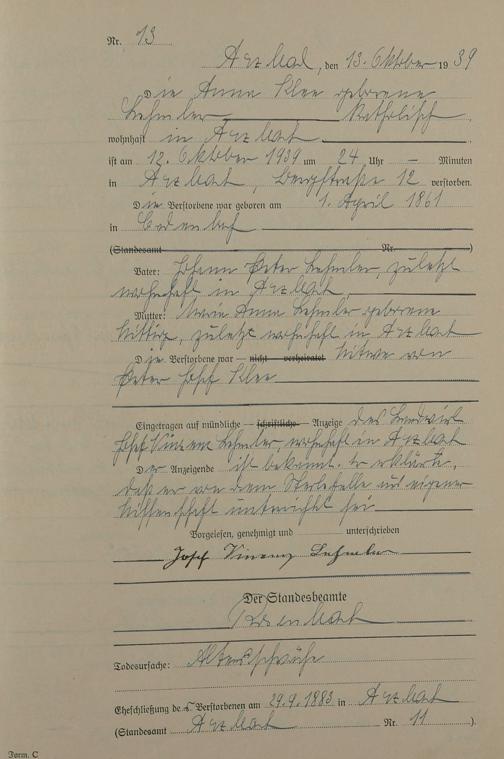 Nr. 13
Arzbach, den 13. Oktober 1939
Die Anna Klee geborene
Lehmler katholisch
wohnhaft in Arzbach
ist am 12. Oktober 1939 um 24 Uhr – Minuten
in Arzbach, Bergstraße 12 verstorben.
Die Verstorbene war geboren am 1. April 1861
in Cadenbach
(Standesamt Nr. )
Vater: Johann Peter Lehmler, zuletzt
wohnhaft in Arzbach
Mutter: Maria Anna Lehmler geborene
zuletzt wohnhaft in Arzbach
Die Verstorbene war — nicht — verheiratet Witwe von
Peter Josef Klee
Eingetragen auf mündliche — schriftliche — Anzeige des Landwirt
Josef Vinzenz Lehmler, wohnhaft in Arzbach
Der Anzeigende ist bekannt. Er erklärte,
daß er von dem Sterbefalle aus eigener
Wissenschaft unterrichtet sei.
Vorgelesen, genehmigt und unterschrieben
Josef Vinzenz Lehmler
Der Standesbeamte
Todesursache: Altersschwäche
Eheschließung der Verstorbenen am 29.9.1883 in Arzbach
(Standesamt Arzbach Nr. 11 ).
Form. C